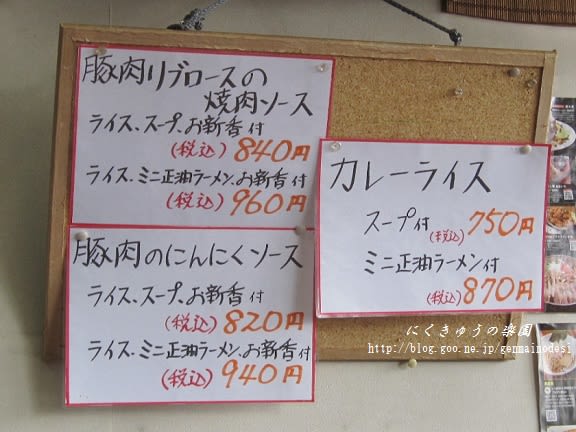 豚肉リブロースの
焼肉ソース
ライス、スープ、お新香付
(税込) 840円
ライス、ミニ正油ラーメン、お新香付
(税込) 960円
豚肉のにんにくソース
ライス、スープ、お新香付
(税込) 820円
ライス、ミニ正油ラーメン、お新香付
(税込) 940円
カレーライス
スープ付 (税込) 750円
ミニ正油ラーメン付
(税込) 870円
にくきゅうの楽園
http://blog.goo.ne.jp/genmainodesi